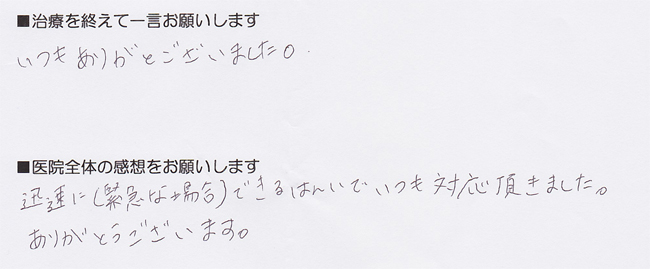 ■治療を終えて一言お願いします
いつもありがとございました。
■医院全体の感想をお願いします
迅速に(緊急な場合)できるはんいでいつも対応頂きました。
ありがとうございます。